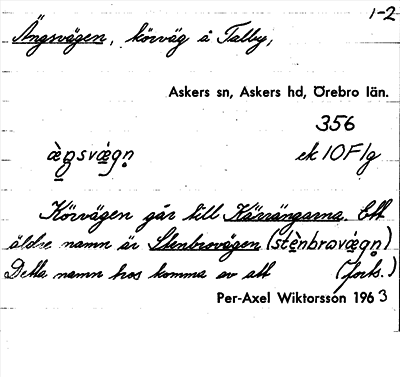 1-2
Ängsvägen, körväg å Talby,
Askers sn, Askers hd, Örebro län.
356
æ̀ŋsvæ̀gn̥ ek 10F1g
Körvägen går till Kärrängarna. Ett
äldre namn är Stenbrovägen (stènbrovæ̀gn̥)
Detta namn hos komma av att (forts.)
Per-Axel Wiktorsson 1963